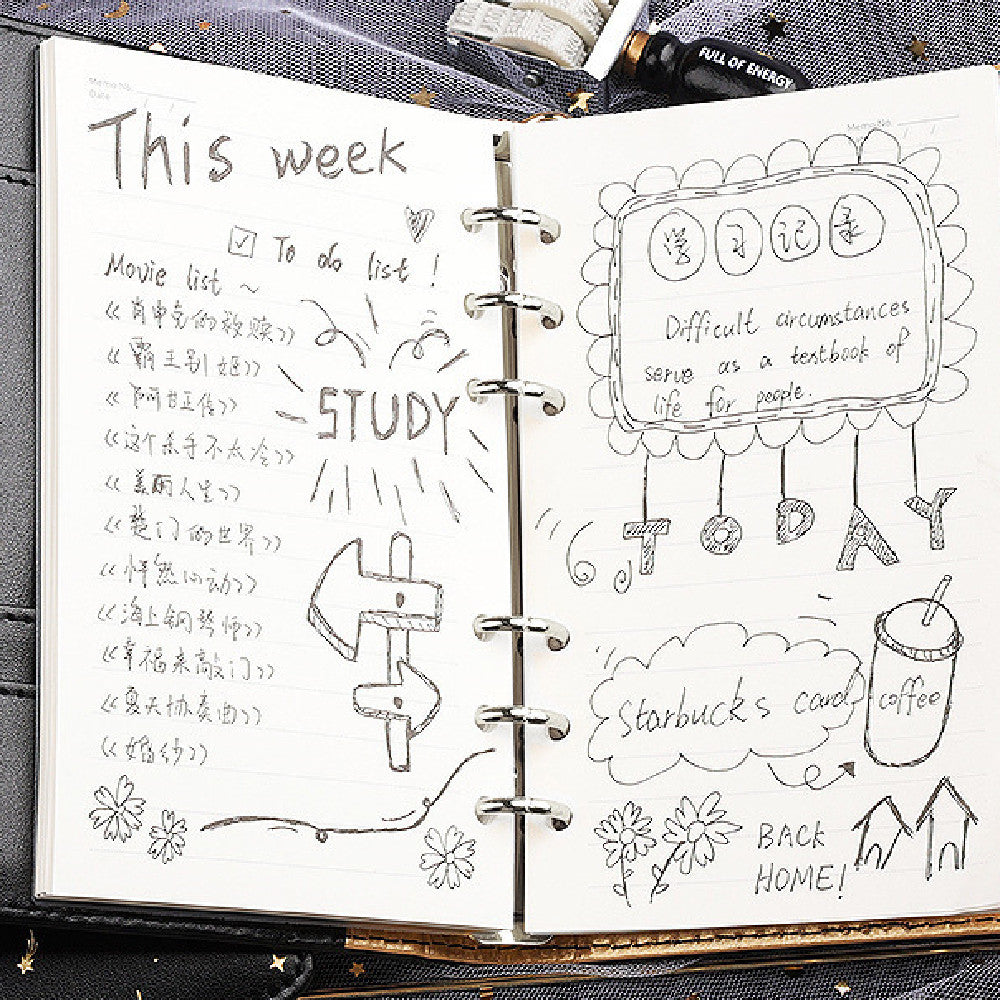 Memo No.
Date
This week
To do list !
Movie list ~
《肖申克的救赎》
《霸王别姬》
《阿甘正传》
《这个杀手不太冷》
《美丽人生》
《楚门的世界》
《怦然心动》
《海上钢琴师》
《幸福来敲门》
《夏天协奏曲》
《婚纱》
STUDY
FULL OF ENERGY
Memo No.
学习记录
Difficult circumstances
serve as a textbook of
life for people.
TODAY
Starbucks card
coffee
BACK
HOME!